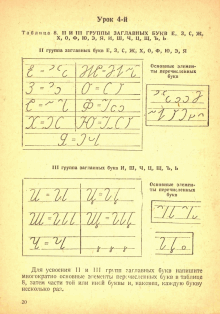 Урок 4-й
Таблица 8. II И III ГРУППЫ ЗАГЛАВНЫХ БУКВ Е, З, С, Ж,
Х, О, Ф, Ю, Э, Я, И, Ш, Ч, Ц, Щ, Ъ, Ь
II группа заглавных букв Е, З, С, Ж, Х, О, Ф, Ю, Э, Я
Основные элемен-
ты перечисленных
букв
III группа заглавных букв И, Ш, Ч, Ц, Щ, Ъ, Ь
Основные элемен-
ты перечисленных
букв
Для усвоения II и III групп заглавных букв напишите
многократно основные элементы перечисленных букв в таблице
8, затем части той или иной буквы и, наконец, каждую букву
несколько раз.
20